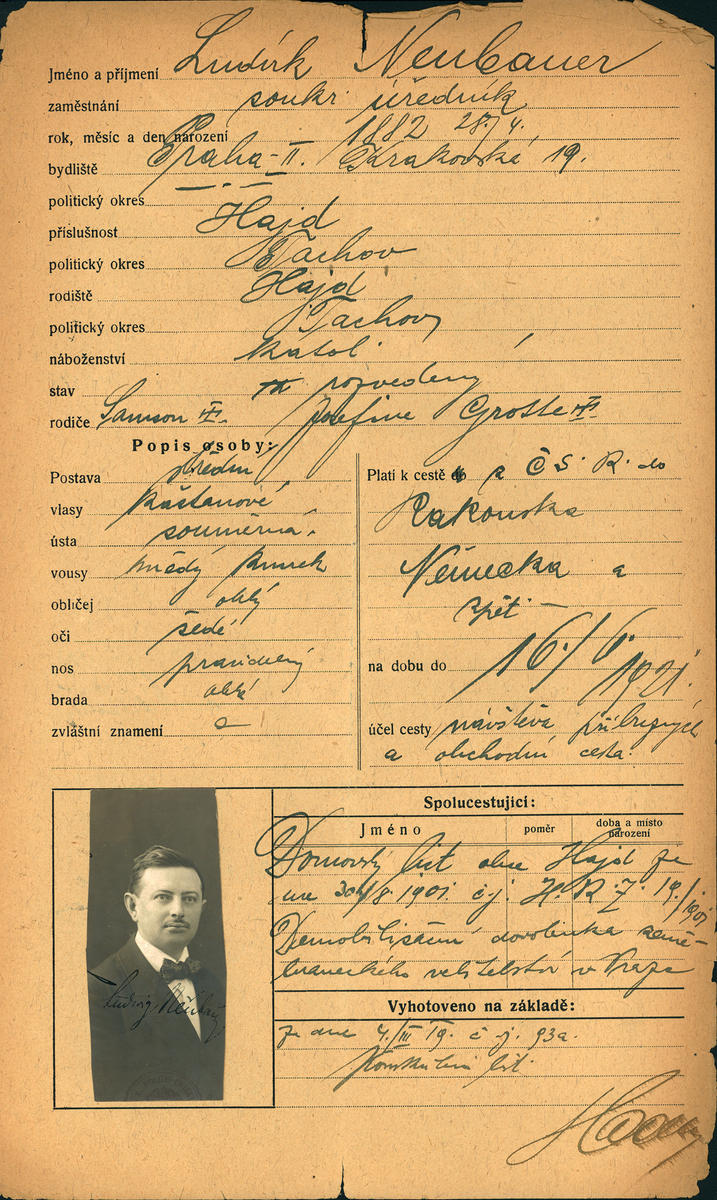 Jméno a příjmení Ludvík Neubauer
zaměstnání soukr. úředník
rok, měsíc a den narození 1882 28/4.
bydliště Praha-II. Krakovská 19.
politický okres
příslušnost Hajd
politický okres Tachov
rodiště Hajd
politický okres Tachov
náboženství katol.
stav rozvedený
rodiče Samson Josefine Grosse
Popis osoby:
Postava střední
vlasy kaštanové
ústa souměrná.
vousy hnědý knírek
obličej oblý
oči šedé
nos pravidelný
brada oblá
zvláštní znamení
Platí k cestě z Č. S. R. do
Rakouska
Německa a
zpět. —
na dobu do 16./6. 1921.
účel cesty návštěva příbuzných
a obchodní cesta.
Spolucestující:
Jméno poměr doba a místo narození
Domovský list obce Hajd ze
dne 30/8. 1901. č. j. 19./1901
Demobilisační dovolenka země-
braneckého velitelství v Praze
Vyhotoveno na základě:
ze dne 4./III 19. č. j. 93a.
list.
Ludwig